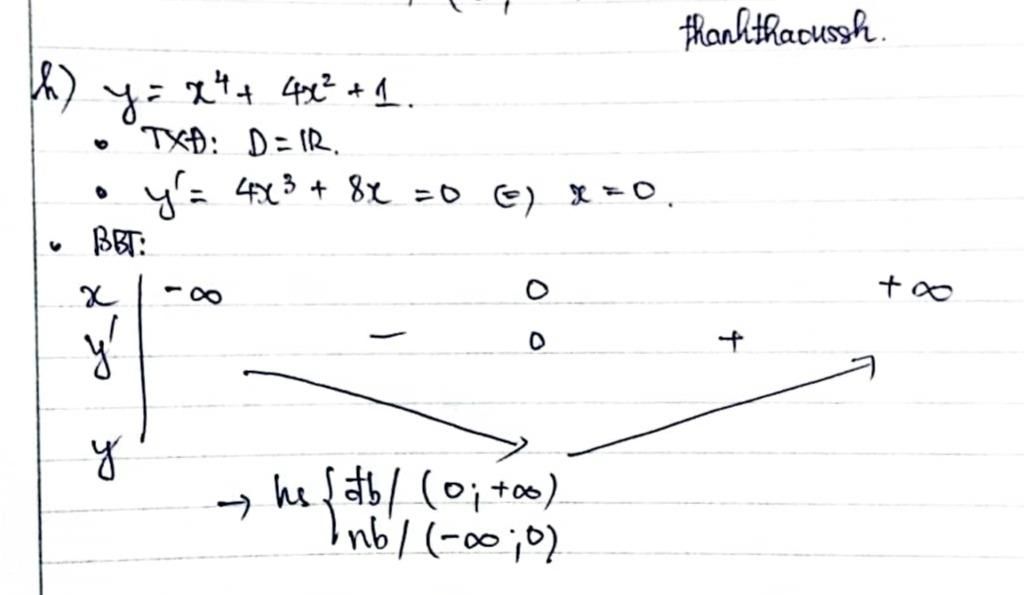 thanhthaoussh.
h) y = x⁴ + 4x² + 1.
• TXĐ: D = ℝ.
• y' = 4x³ + 8x = 0 ⇔ x = 0.
• BBT:
x -∞ 0 +∞
y' - 0 +
y
→ hs { đb / (0; +∞)
nb / (-∞; 0)